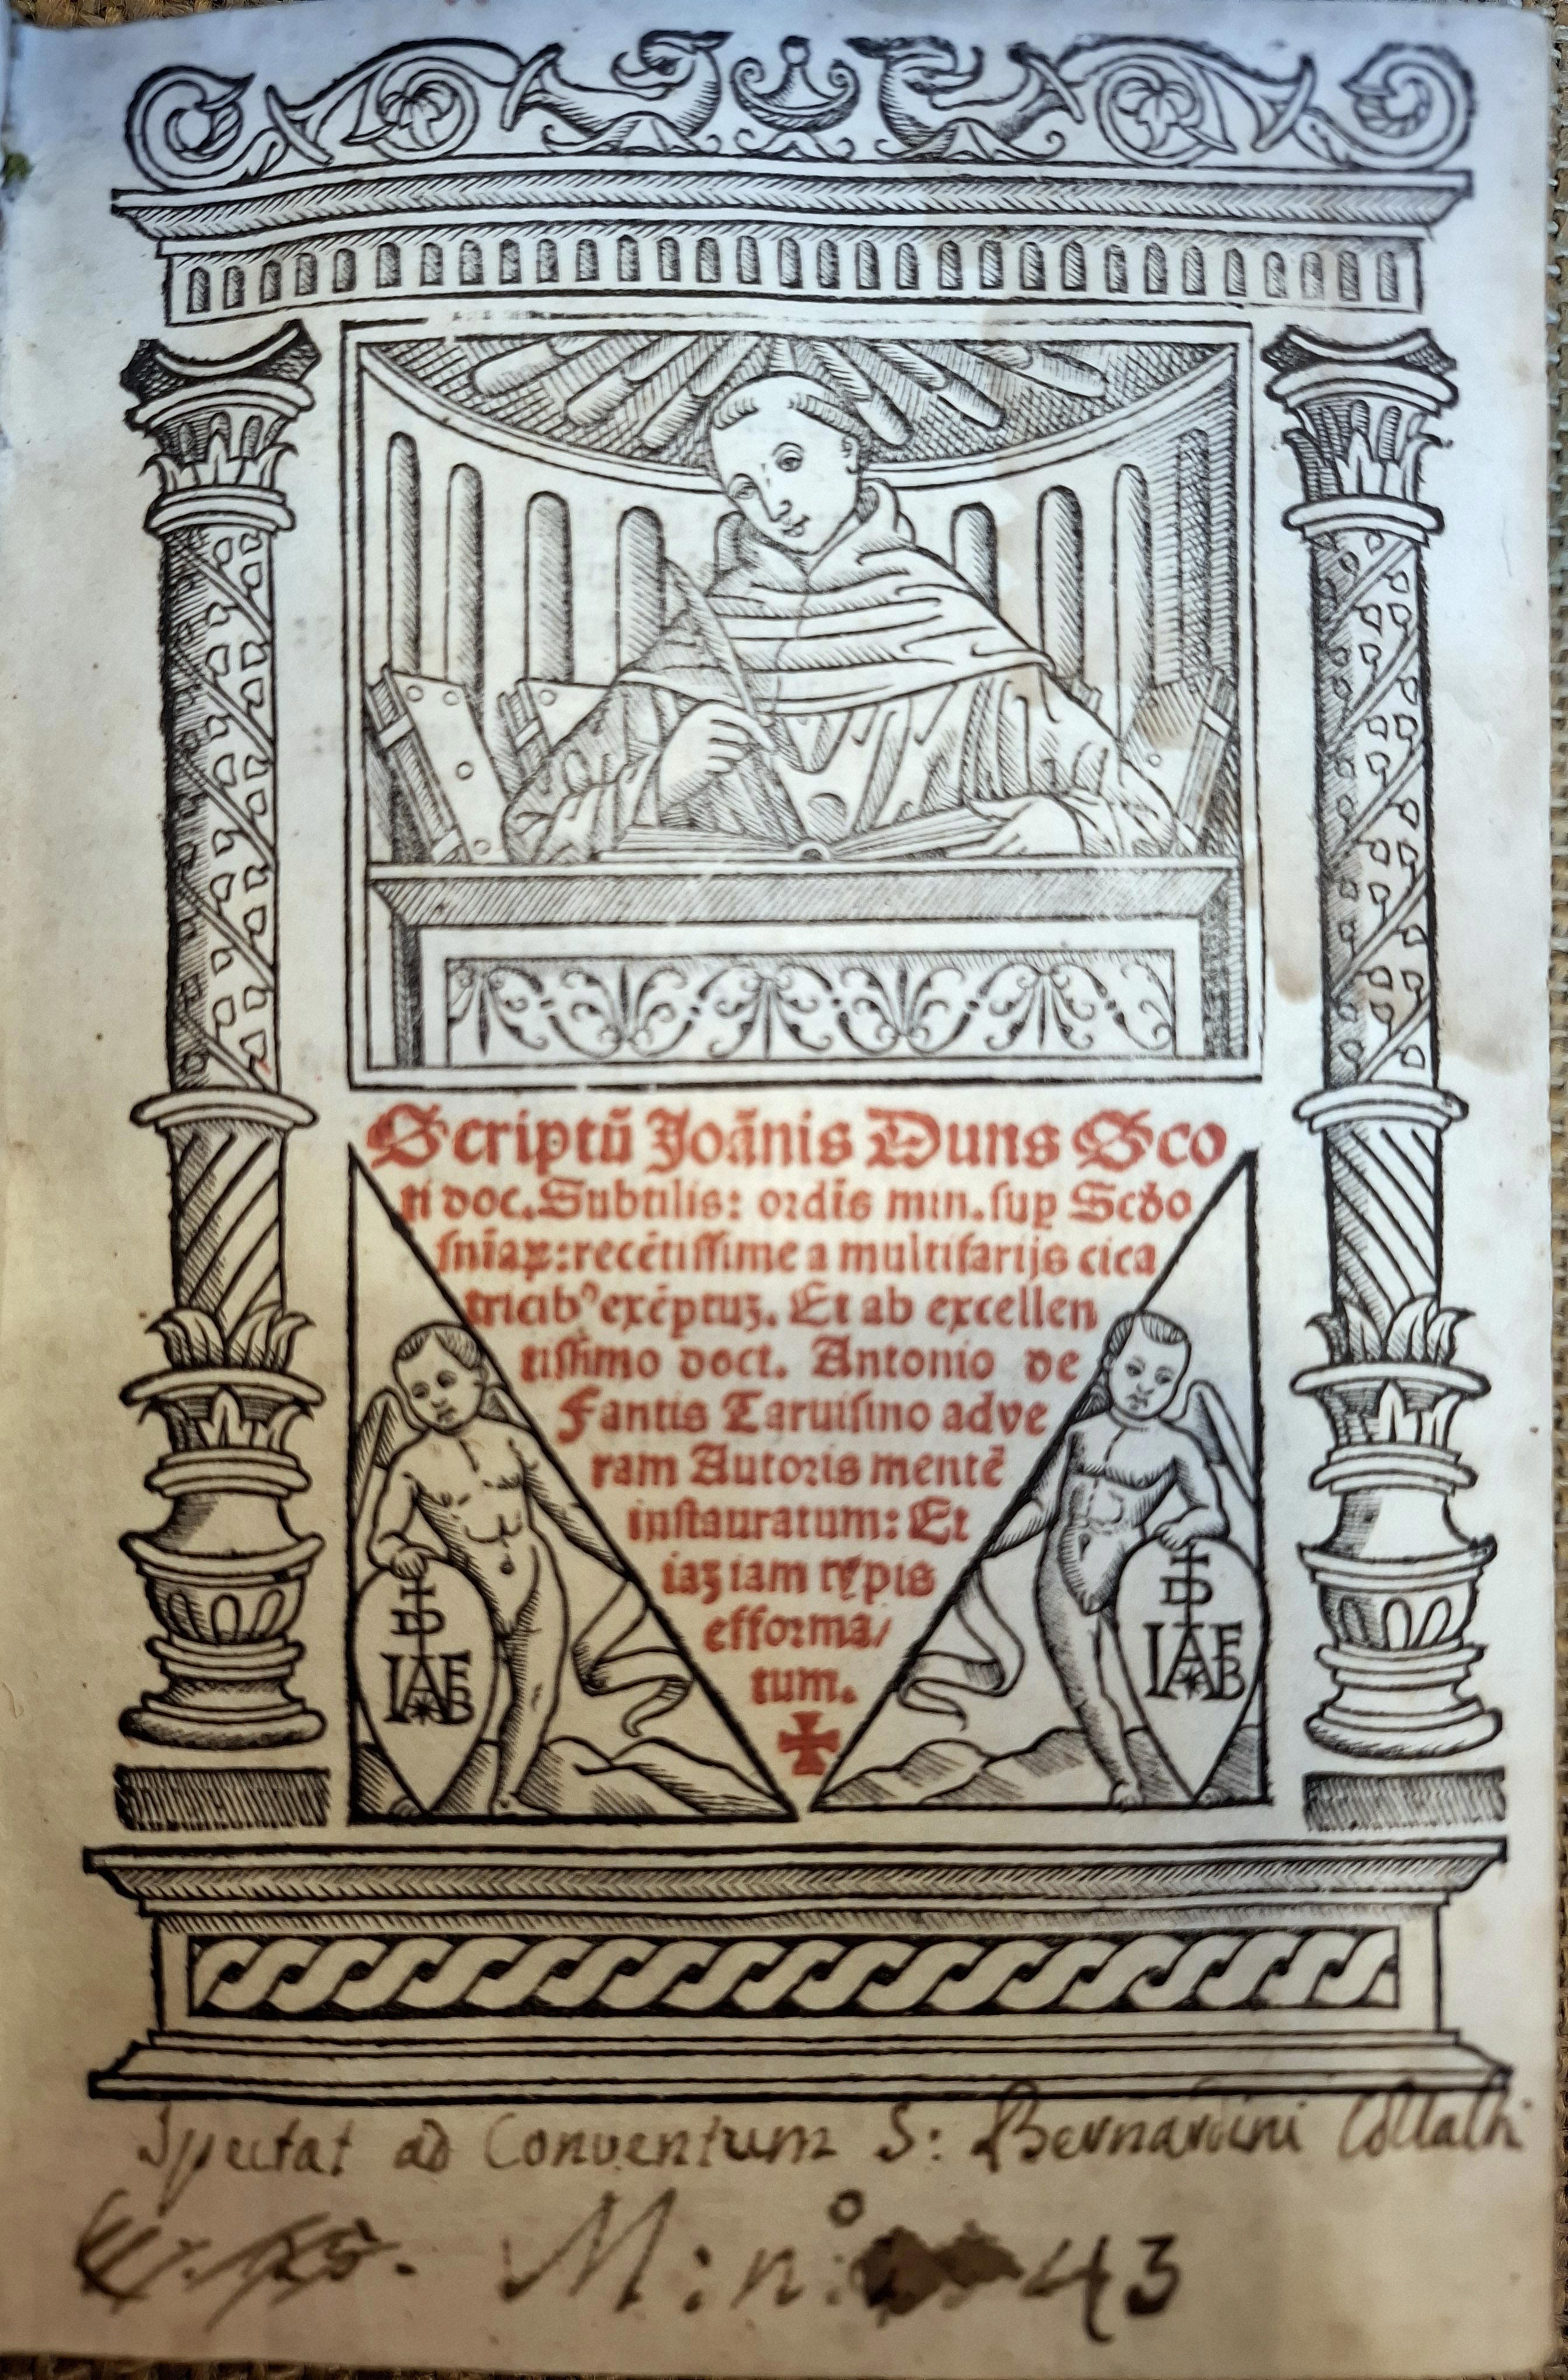 Scriptū Joānis Duns Sco
ti doc. Subtilis: ordīs min. sup Scd̄o
sniaꝝ: recētissime a multifarijs cica
tricibꝰ exēptuꝫ. Et ab excellen
tissimo doct. Antonio de
Fantis Taruisino ad ve
ram Autoris mentē
instauratum: Et
iaꝫ iam
efforma/
tum.
✠
D
IAB
D
IAB
Spectat ad Conventum S: Bernardini
M: n:º 43